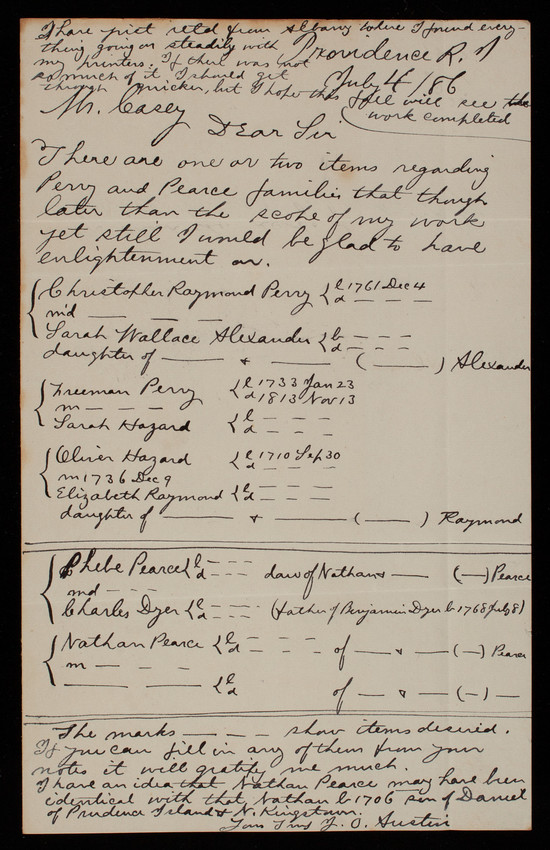 I have just retd from Albany where I found every-
thing going on steadily with
my printers. If there was not
so much of it I should get
through quicker, but I hope this
fall will see the
work completed
Providence R. I
July 4/86
Mr. Casey
Dear Sir
There are one or two items regarding
Perry and Pearce families that though
later than the scope of my work
yet still I would be glad to have
enlightenment on.
Christopher Raymond Perry { b 1761 Dec 4
md — — — d — — —
Sarah Wallace Alexander { b — — —
d — — —
daughter of — & — (—) Alexander
Freeman Perry { b 1733 Jan 23
m — — — d 1813 Nov 13
Sarah Hazard { b — — —
d — — —
Oliver Hazard { b 1710 Sep 30
m 1736 Dec 9 d — — —
Elizabeth Raymond { b — — —
d — — —
daughter of — & — (—) Raymond
Phebe Pearce { b — — — dau of Nathan & — (—) Pearce
md — — — d — — —
Charles Dyer { b — — — (father of Benjamin Dyer b 1768 July 8)
d — — —
Nathan Pearce { b — — — of — & — (—) Pearce
m — — — d — — —
— — { b of — & — (—) —
d
The marks — — — show items desired.
If you can fill in any of them from your
notes it will gratify me much.
I have an idea that Nathan Pearce may have been
identical with that Nathan b 1706 son of Daniel
of Prudence Island & N. Kingstown.
Yours Truly J. O. Austin